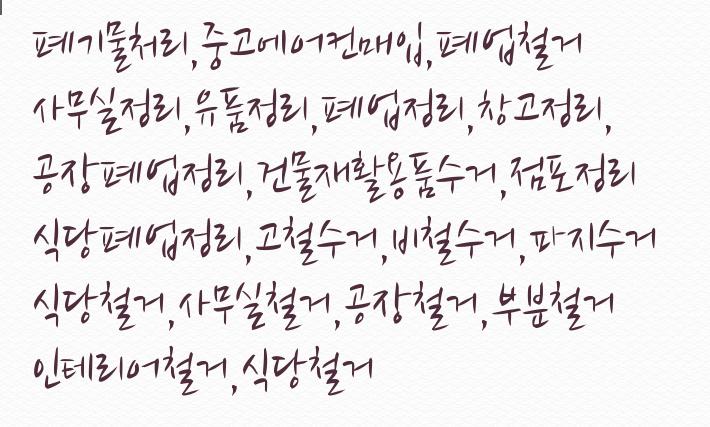 폐기물처리,중고에어컨매입,폐업철거
사무실정리,유품정리,폐업정리,창고정리,
공장폐업정리,건물재활용품수거,점포정리
식당폐업정리,고철수거,비철수거,파지수거
식당철거,사무실철거,공장철거,부분철거
인테리어철거,식당철거